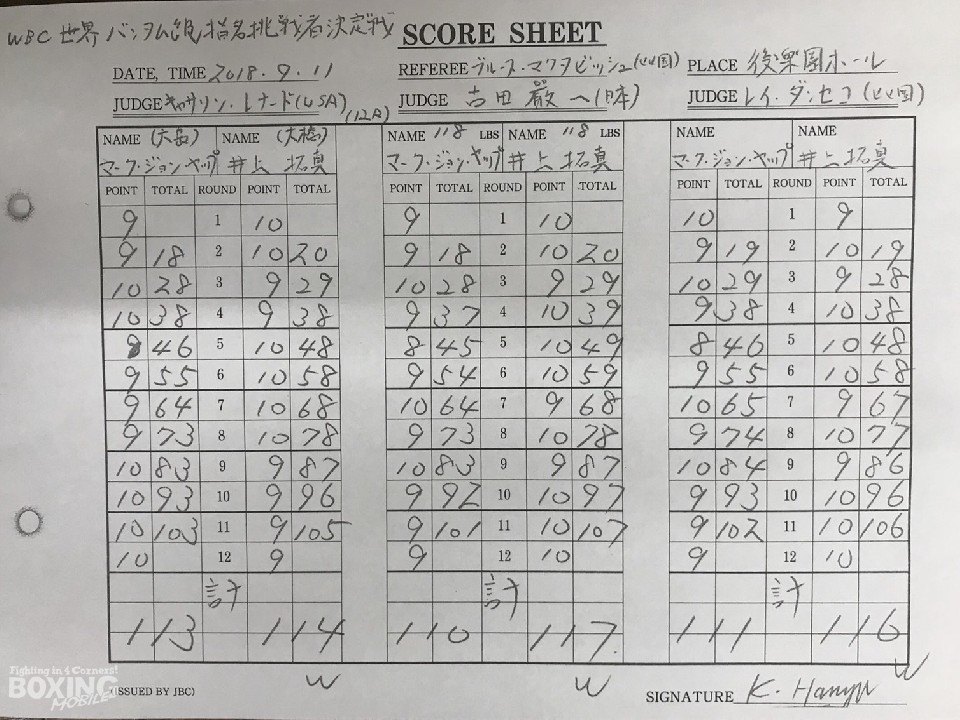 WBC 世界バンタム級指名挑戦者決定戦 SCORE SHEET
DATE, TIME 2018.9.11 REFEREE ブルース・マクタビッシュ(比国) PLACE 後楽園ホール
JUDGE キャサリン・レナード(USA) (12R) JUDGE 古田 厳一(日本) JUDGE レイ・ダンセコ(比国)
NAME (六島) NAME (大橋) NAME 118 LBS NAME 118 LBS NAME NAME
マーク・ジョン・ヤップ 井上 拓真 マーク・ジョン・ヤップ 井上 拓真 マーク・ジョン・ヤップ 井上 拓真
POINT TOTAL ROUND POINT TOTAL POINT TOTAL ROUND POINT TOTAL POINT TOTAL ROUND POINT TOTAL
9 1 10 9 1 10 10 1 9
9 18 2 10 20 9 18 2 10 20 9 19 2 10 19
10 28 3 9 29 10 28 3 9 29 10 29 3 9 28
10 38 4 9 38 9 37 4 10 39 9 38 4 10 38
46 5 10 48 8 45 5 10 49 8 46 5 10 48
9 55 6 10 58 9 54 6 10 59 9 55 6 10 58
9 64 7 10 68 10 64 7 9 68 10 65 7 9 67
9 73 8 10 78 9 73 8 10 78 9 74 8 10 77
10 83 9 9 87 10 83 9 9 87 10 84 9 9 86
10 93 10 9 96 9 92 10 10 97 9 93 10 10 96
10 103 11 9 105 9 101 11 10 107 9 102 11 10 106
10 12 9 9 12 10 9 12 10
計 計 計
113 114 110 117 111 116
W W W
(ISSUED BY JBC) SIGNATURE K. Hanyu
Fighting in 4 Corners!
BOXING
MOBILE